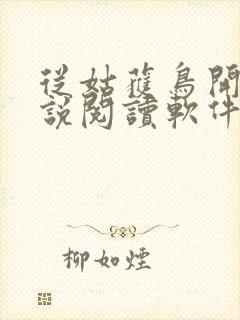 從姑蘇鳥開
說閱讀軟件
柳如煙